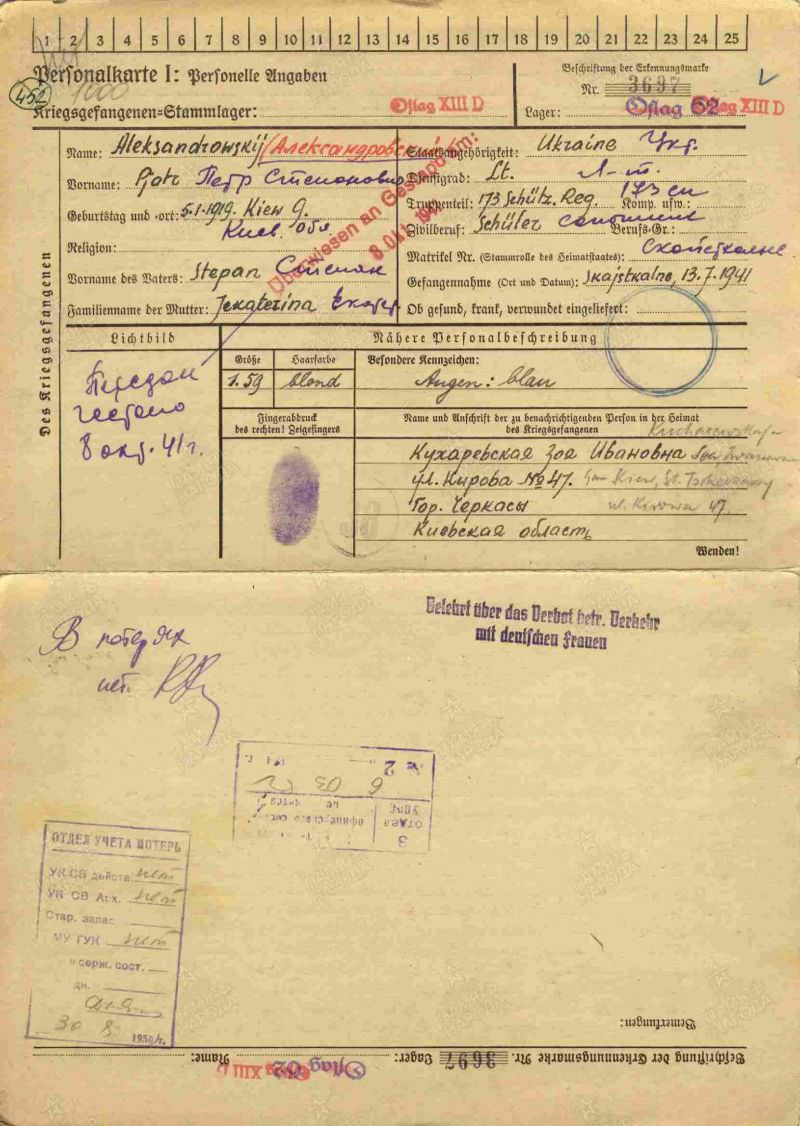 1 2 3 4 5 6 7 8 9 10 11 12 13 14 15 16 17 18 19 20 21 22 23 24 25
Personalkarte I: Personelle Angaben
452
1000
Kriegsgefangenen-Stammlager: Oflag XIII D
Beschriftung der Erkennungsmarke
Nr. 3697
Lager: Oflag 62 Oflag XIII D
Des Kriegsgefangenen
Name: Aleksandrowskij / Александровский
Vorname: Pjotr Петр Степанович
Geburtstag und -ort: 5.1.1919. Kiew G.
Киев. обл.
Religion:
Vorname des Vaters: Stepan Степан
Familienname der Mutter: Jekaterina
Überwiesen an Gestapo am:
Staatsangehörigkeit: Ukraine Укр.
Dienstgrad: Lt. Л-т.
Truppenteil: 173 Schütz. Reg. Komp. usw.: 173 сп
Zivilberuf: Schüler Berufs-Gr.:
Matrikel Nr. (Stammrolle des Heimatstaates):
Gefangennahme (Ort und Datum): Skajstkalne, 13.7.1941
Ob gesund, krank, verwundet eingeliefert:
Lichtbild
Передан
гестапо
8 окт. 41 г.
Nähere Personalbeschreibung
Größe Haarfarbe Besondere Kennzeichen:
1.59 blond Augen: blau
Fingerabdruck
des rechten! Zeigefingers
Name und Anschrift der zu benachrichtigenden Person in der Heimat
des Kriegsgefangenen
Кухаревская Зоя Ивановна
ул. Кирова № 47.
Гор. Черкасы
ul. Kirowa 47.
Киевская область
Wenden!
Belehrt über das Verbot betr. Verkehr
mit deutschen Frauen
В потерях
нет.
№ 2
3
отдел
УПВС
ОТДЕЛ УЧЕТА ПОТЕРЬ
УК СВ действ. нет
УК СВ Арх. нет
Стар. запас
МУ ГУК нет
и серж. сост.
30 8 1950 г.
Bemerkungen:
Beschriftung der Erkennungsmarke Nr. 3697 Lager: Oflag 62 Oflag XIII D Name: